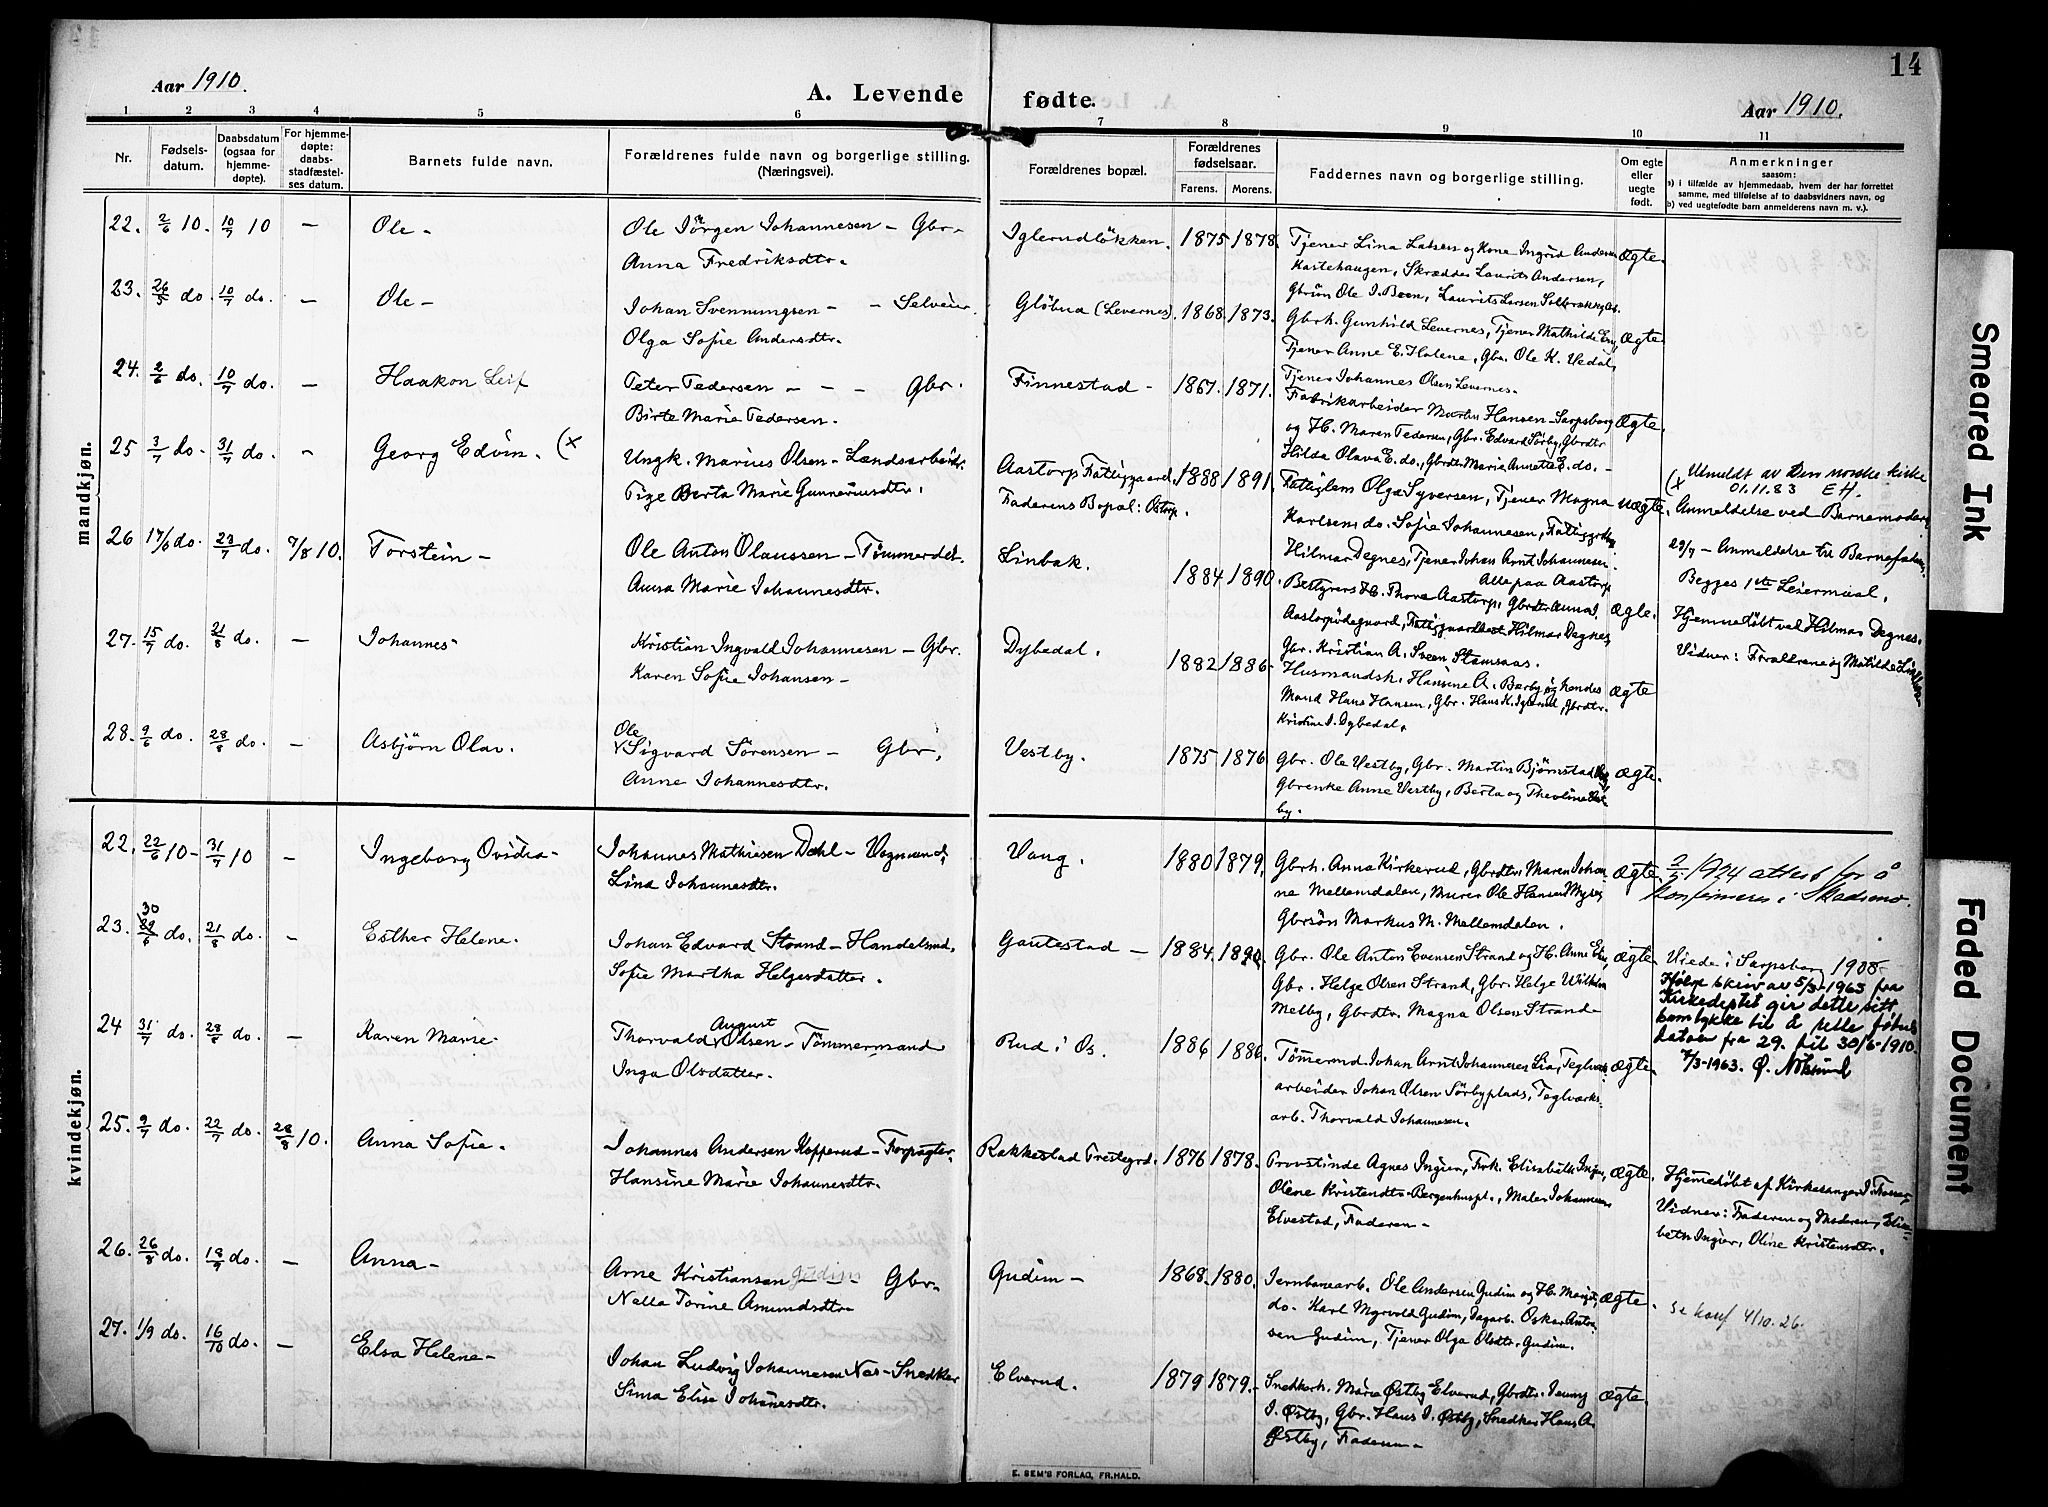 14
Aar 1910.
A. Levende fødte.
Aar 1910.
1 2 3 4 5 6 7 8 9 10 11
Nr.
Fødsels-
datum.
Daabsdatum
(ogsaa for
hjemme-
døpte).
For hjemme-
døpte:
daabs-
stadfæstel-
ses datum.
Barnets fulde navn.
Forældrenes fulde navn og borgerlige stilling.
(Næringsvei).
Forældrenes bopæl.
Forældrenes
fødselsaar.
Farens. Morens.
Faddernes navn og borgerlige stilling.
Om egte
eller
uegte
født.
Anmerkninger
saasom:
a) i tilfælde av hjemmedaab, hvem der har forrettet
samme, med tilføielse af to daabsvidners navn, og
b) ved uegtefødte barn anmelderens navn m. v.).
mandkjøn.
22. 2/6 10. 10/7 10 — Ole — Ole Jörgen Johannesen — Gbr — Iglerudløkken. 1875 1878. Tjener Lina Larsen og Kone Ingrid Andersen ægte.
Anna Fredriksdtr. Kastehaugen, Skrædder Laurits Andersen,
Gbrsön Ole I. Been, Laurits Larsen
23. 26/5 do. 10/7 do. — Ole — Johan Svenningsen — — Selveier. Gløbud (Levernes). 1868. 1873. Gbrh. Gunhild Levernes, Tjener Mathilde ægte
Olga Sofie Andersdtr. Tjener Anne E. Halene, Gbr. Ole K. Vedal,
Tjener Johannes Olsen Levernes.
24. 2/6 do. 10/7 do. — Haakon Leif Peter Pedersen — — — Gbr. Finnestad — 1867. 1871. Fabrikarbeider Martin Hansen Sarpsborg ægte.
Birte Marie Pedersen. og H. Maren Pedersen, Gbr. Edvard Sørby, Gbrdtr
Hilda Olava E. do., Gbrdtr Maria Annette E. do. —
25 3/7 do. 31/7 do. — Georg Edvin. (x Ungk. Marius Olsen — Landsarbeider. Aastorp Fattiggaard 1888 1891. Fattiglem Olga Syversen, Tjener Magna uægte. (x Utmeldt av Den norske kirke
01.11.83 EH.
Pige Berta Marie Gunneriusdtr. Faderens Bopæl: Ostorp. Karlsen, do. Sofie Johannesen, Anmeldelse ved Barnemoderen
Hilmar Degnes, Tjener Johan Arnt Johannesen. 29/7 — Anmeldelse til Barnefaderen.
Alle paa Aastorp Begges 1ste Leiermaal.
26 17/6 do. 23/7 do. 7/8 10. Torstein — Ole Anton Olaussen — Linbak. 1884 1890. Bestyrers H. Thora Aastorp, Gbrdtr Anna ægte. Hjemmedøbt ved Hilmar Degnes.
Anna Marie Johannesdtr. Hilmar Degnes, Vidner: Forældrene og Matilde
Gbr. Kristian A. Sveen Stamsaas.
27. 15/7 do. 21/8 do. — Johannes — Kristian Ingvald Johannesen — Gbr. Dybedal. 1882 1886 Husmandsk. Hansine A. Bærby og hendes ægte
Karen Sofie Johansen — Mand Hans Hansen, Gbr. Hans K. Iglerud, Gbrdtr.
Kristine I. Dybedal.
28. 9/6 do. 28/8 do. — Asbjørn Olav. Ole
Sigvard Sörensen — Gbr. Vestby. 1875 1876 Gbr. Ole Vestby, Gbr. Martin Bjørnstad ægte.
Anne Johannesdtr. Gbrenke Anne Vestby, Berta og Theoline Vest-
by.
kvindekjøn.
22. 22/6 10 — 31/7 10 — Ingeborg Ovidia — Johannes Mathiesen Dahl — Vognmand, Vang. 1880 1879. Gbrh. Anna Kirkerud, Gbrdtr. Maren Johan- ægte. 2/ 1924 attest for å
Lina Johannesdtr. ne Mellemdalen, Murer Ole Hansen konfirmeres i
Gbrsön Markus M. Mellemdalen.
23. 30
29/6 do. 21/8 do. — Esther Helene. Johan Edvard Strand — Handelsmd. Gautestad — 1884. 1890. Gbr. Ole Anton Evensen Strand og H. Anne ægte. Viede i Sarpsborg 1908
Sofie Martha Helgesdatter. Gbr. Helge Olsen Strand, Gbr. Helge Wilhelm Ifølge skriv av 5/3-1963 fra
Melby, Gbrdtr. Magna Olsen Strand — Kirkedeptet gir dette sitt
samtykke til å rette fødsels
datoen fra 29. til 30/6-1910.
7/3-1963. Ø.
24 31/7 do. 28/8 do. — Karen Marie. August
Thorvald Olsen — Tömmermand Rud i Os. 1886 1886. Tömmermd. Johan Arnt Johannesen Lia, Teglværks- ægte.
Inga Olsdatter. arbeider Johan Olsen Sörbyplads, Teglværks-
arb. Thorvald Johannesen.
25. 9/7 do. 22/7 do. 28/8 10. Anna Sofie. Johannes Andersen Kopperud — Forpagter. Rakkestad Prestegrd. 1876 1878. Provstinde Agnes Ingier, Frk. Elisabeth Ingier, ægte. Hjemmedøbt af Kirkesanger
Hansine Marie Johannesdtr. Olene Kristensdtr. Bergenhuspl., Maler Johannesen Vidner: Faderen og Moderen, Elisa-
Elvestad, Faderen — beth Ingier, Oline Kristensdtr.
26. 26/8 do. 18/9 do. — Anna — Arne Kristiansen Gudim Gbr — Gudim — 1868. 1880. Jernbanearb. Ole Andersen Gudim og H. Margit, ægte. Se konf 4/10. 26.
Nella Torine Amundsdtr — do. Karl Myrvold Gudim, Dagarb. Oskar Anton-
sen Gudim, Tjener Olga Olsdtr. Gudim.
27. 1/9 do. 16/10 do. — Elsa Helene — Johan Ludvig Johannesen Næs — Snedker Elverud. 1879 1879. Snedkerh. Marie Østby Elverud, Gbrdtr. Jenny ægte.
Sima Elise Johannesdtr. I. Østby, Gbr. Hans I. Østby, Snedker Hans A.
Østby, Faderen —
E. SEM'S FORLAG, FR.HALD.
Smeared Ink
Faded Document